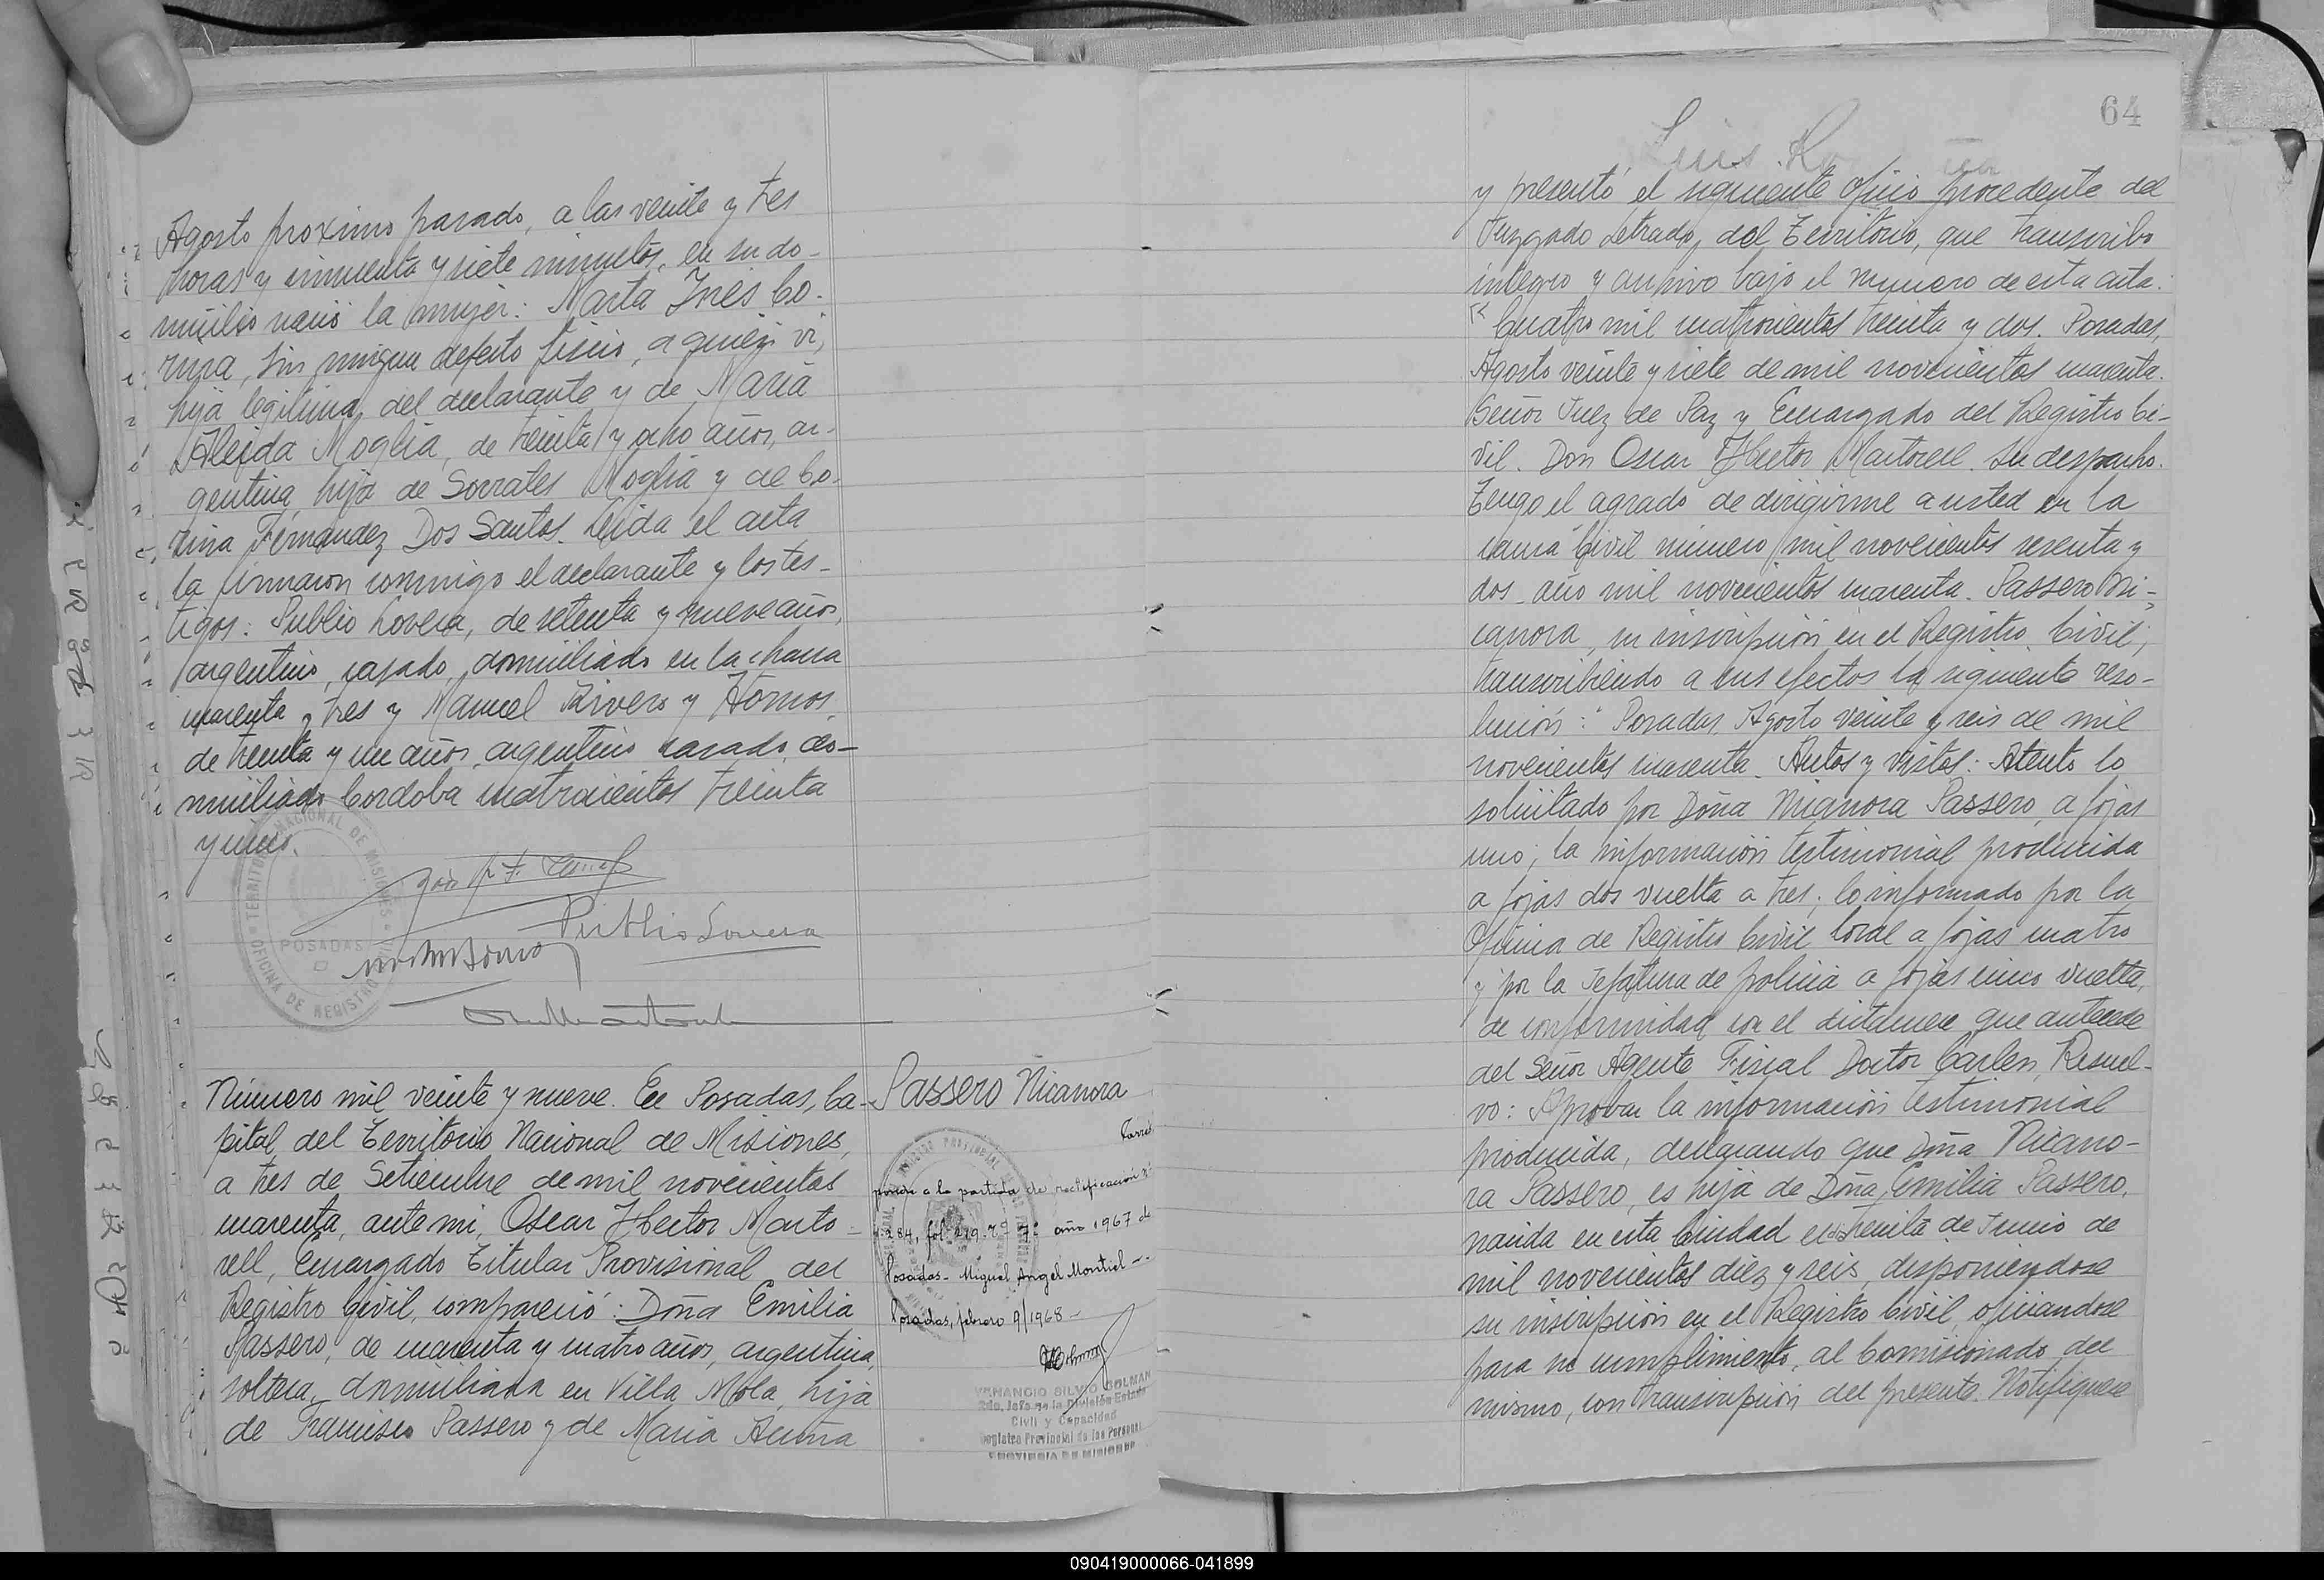 Agosto proximo pasado, a las veinte y tres
horas y cincuenta y siete minutos, en su do-
micilio nació la mujer: Marta Inés Co-
rina, sin ningun defecto fisico, a quien vi,
hija legitima, del declarante y de Maria
Aleida Moglia, de treinta y ocho años, ar-
gentina, hija de Socrates Moglia y de Co-
rina Fernandez Dos Santos. Leida el acta
la firmaron conmigo el declarante y los tes-
tigos: Publio Lovera, de setenta y nueve años,
argentino, casado, domiciliado en la chacra
cuarenta y tres y Manuel Rivero y Hornos,
de treinta y un años, argentino casado, do-
miciliado Cordoba cuatrocientos treinta
y uno.
TERRITORIO NACIONAL DE MISIONES
POSADAS
OFICINA DE REGISTRO CIVIL
Publio Lovera
Número mil veinte y nueve. En Posadas, Ca-
pital, del Territorio Nacional de Misiones,
a tres de Setiembre de mil novecientos
cuarenta, ante mi, Oscar Hector Marto-
rell, Encargado Titular Provisional del
Registro Civil, compareció: Doña Emilia
Passero, de cuarenta y cuatro años, argentina,
soltera, domiciliada en Villa Mola, hija
de Francisco Passero y de Maria Acuña
Passero Nicanora
Corres
ponde a la partida de rectificación nº
284, fol. 219. Tº 7º año 1967 de
Posadas- Miguel Angel Montiel-.
Posadas, febrero 9/1968-
VENANCIO SILVIO COLMAN
2do. Jefe de la División Estado
Civil y Capacidad
Registro Provincial de las Personas
PROVINCIA DE MISIONES
64
Luis
y presentó el siguiente oficio procedente del
Juzgado Letrado, del Territorio, que transcribo
integro y archivo bajo el numero de esta acta:
"Cuatro mil cuatrocientos treinta y dos. Posadas,
Agosto veinte y siete de mil novecientos cuarenta.
Señor Juez de Paz y Encargado del Registro Ci-
vil. Don Oscar Hector Martorell. Su despacho.
Tengo el agrado de dirigirme a usted en la
causa Civil número mil novecientos sesenta y
dos, año mil novecientos cuarenta. Passero Ni-
canora, su inscripción en el Registro Civil,
transcribiendo a sus efectos la siguiente reso-
lución: "Posadas, Agosto veinte y seis de mil
novecientos cuarenta. Autos y Vistos: Atento lo
solicitado por Doña Nicanora Passero, a fojas
uno; la información testimonial producida
a fojas dos vuelta a tres; lo informado por la
Oficina de Registro Civil local a fojas cuatro
y por la Jefatura de policia a fojas cinco vuelta,
de conformidad con el dictamen que antecede
del Señor Agente Fiscal Doctor Carlen, Resuel-
vo: Aprobar la información testimonial
producida, declarando que Doña Nicano-
ra Passero, es hija de Doña Emilia Passero,
nacida en esta Ciudad el treinta de Junio de
mil novecientos diez y seis, disponiendose
su inscripción en el Registro Civil, oficiandose
para su cumplimiento, al Comisionado del
mismo, con transcripción del presente. Notifiquese
090419000066-041899